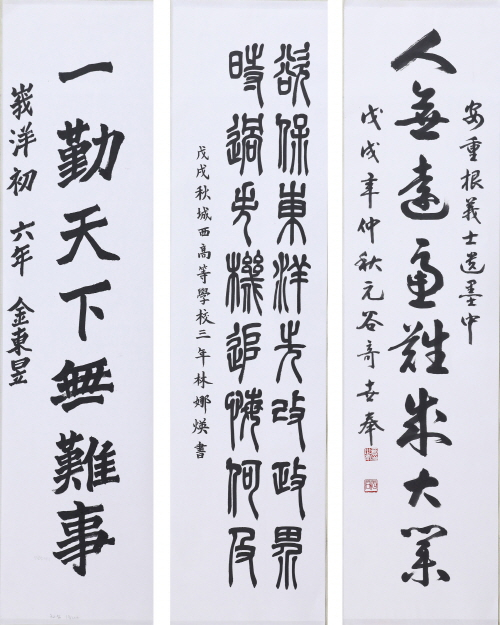 安重根義士遺墨中
人無遠慮難成大業
戊戌年仲秋元谷奇世奉
欲保東洋先改政界
時過失機追悔何及
戊戌秋城西高等學校三年林娜煐書
一勤天下無難事
峩洋初 六年 金東昱